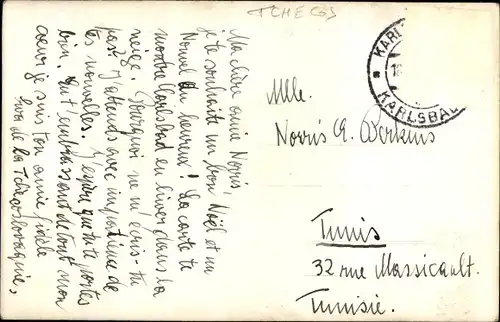 TCHECOS
Ma chère amie Norris,
je te souhaite un bon Noël et un
Nouvel An heureux! La carte te
montre Carlsbad en hiver dans la
neige. Pourquoi ne m'écris-tu
pas? J'attends avec impatience de
tes nouvelles. J'espère que tu te portes
bien. En t'embrassant de tout mon
cœur je suis ton amie fidèle
de la Tchécoslovaquie,
KARLSBAD
Mlle.
Norris E. Perkins
Tunis
32 rue Massicault.
Tunisie.